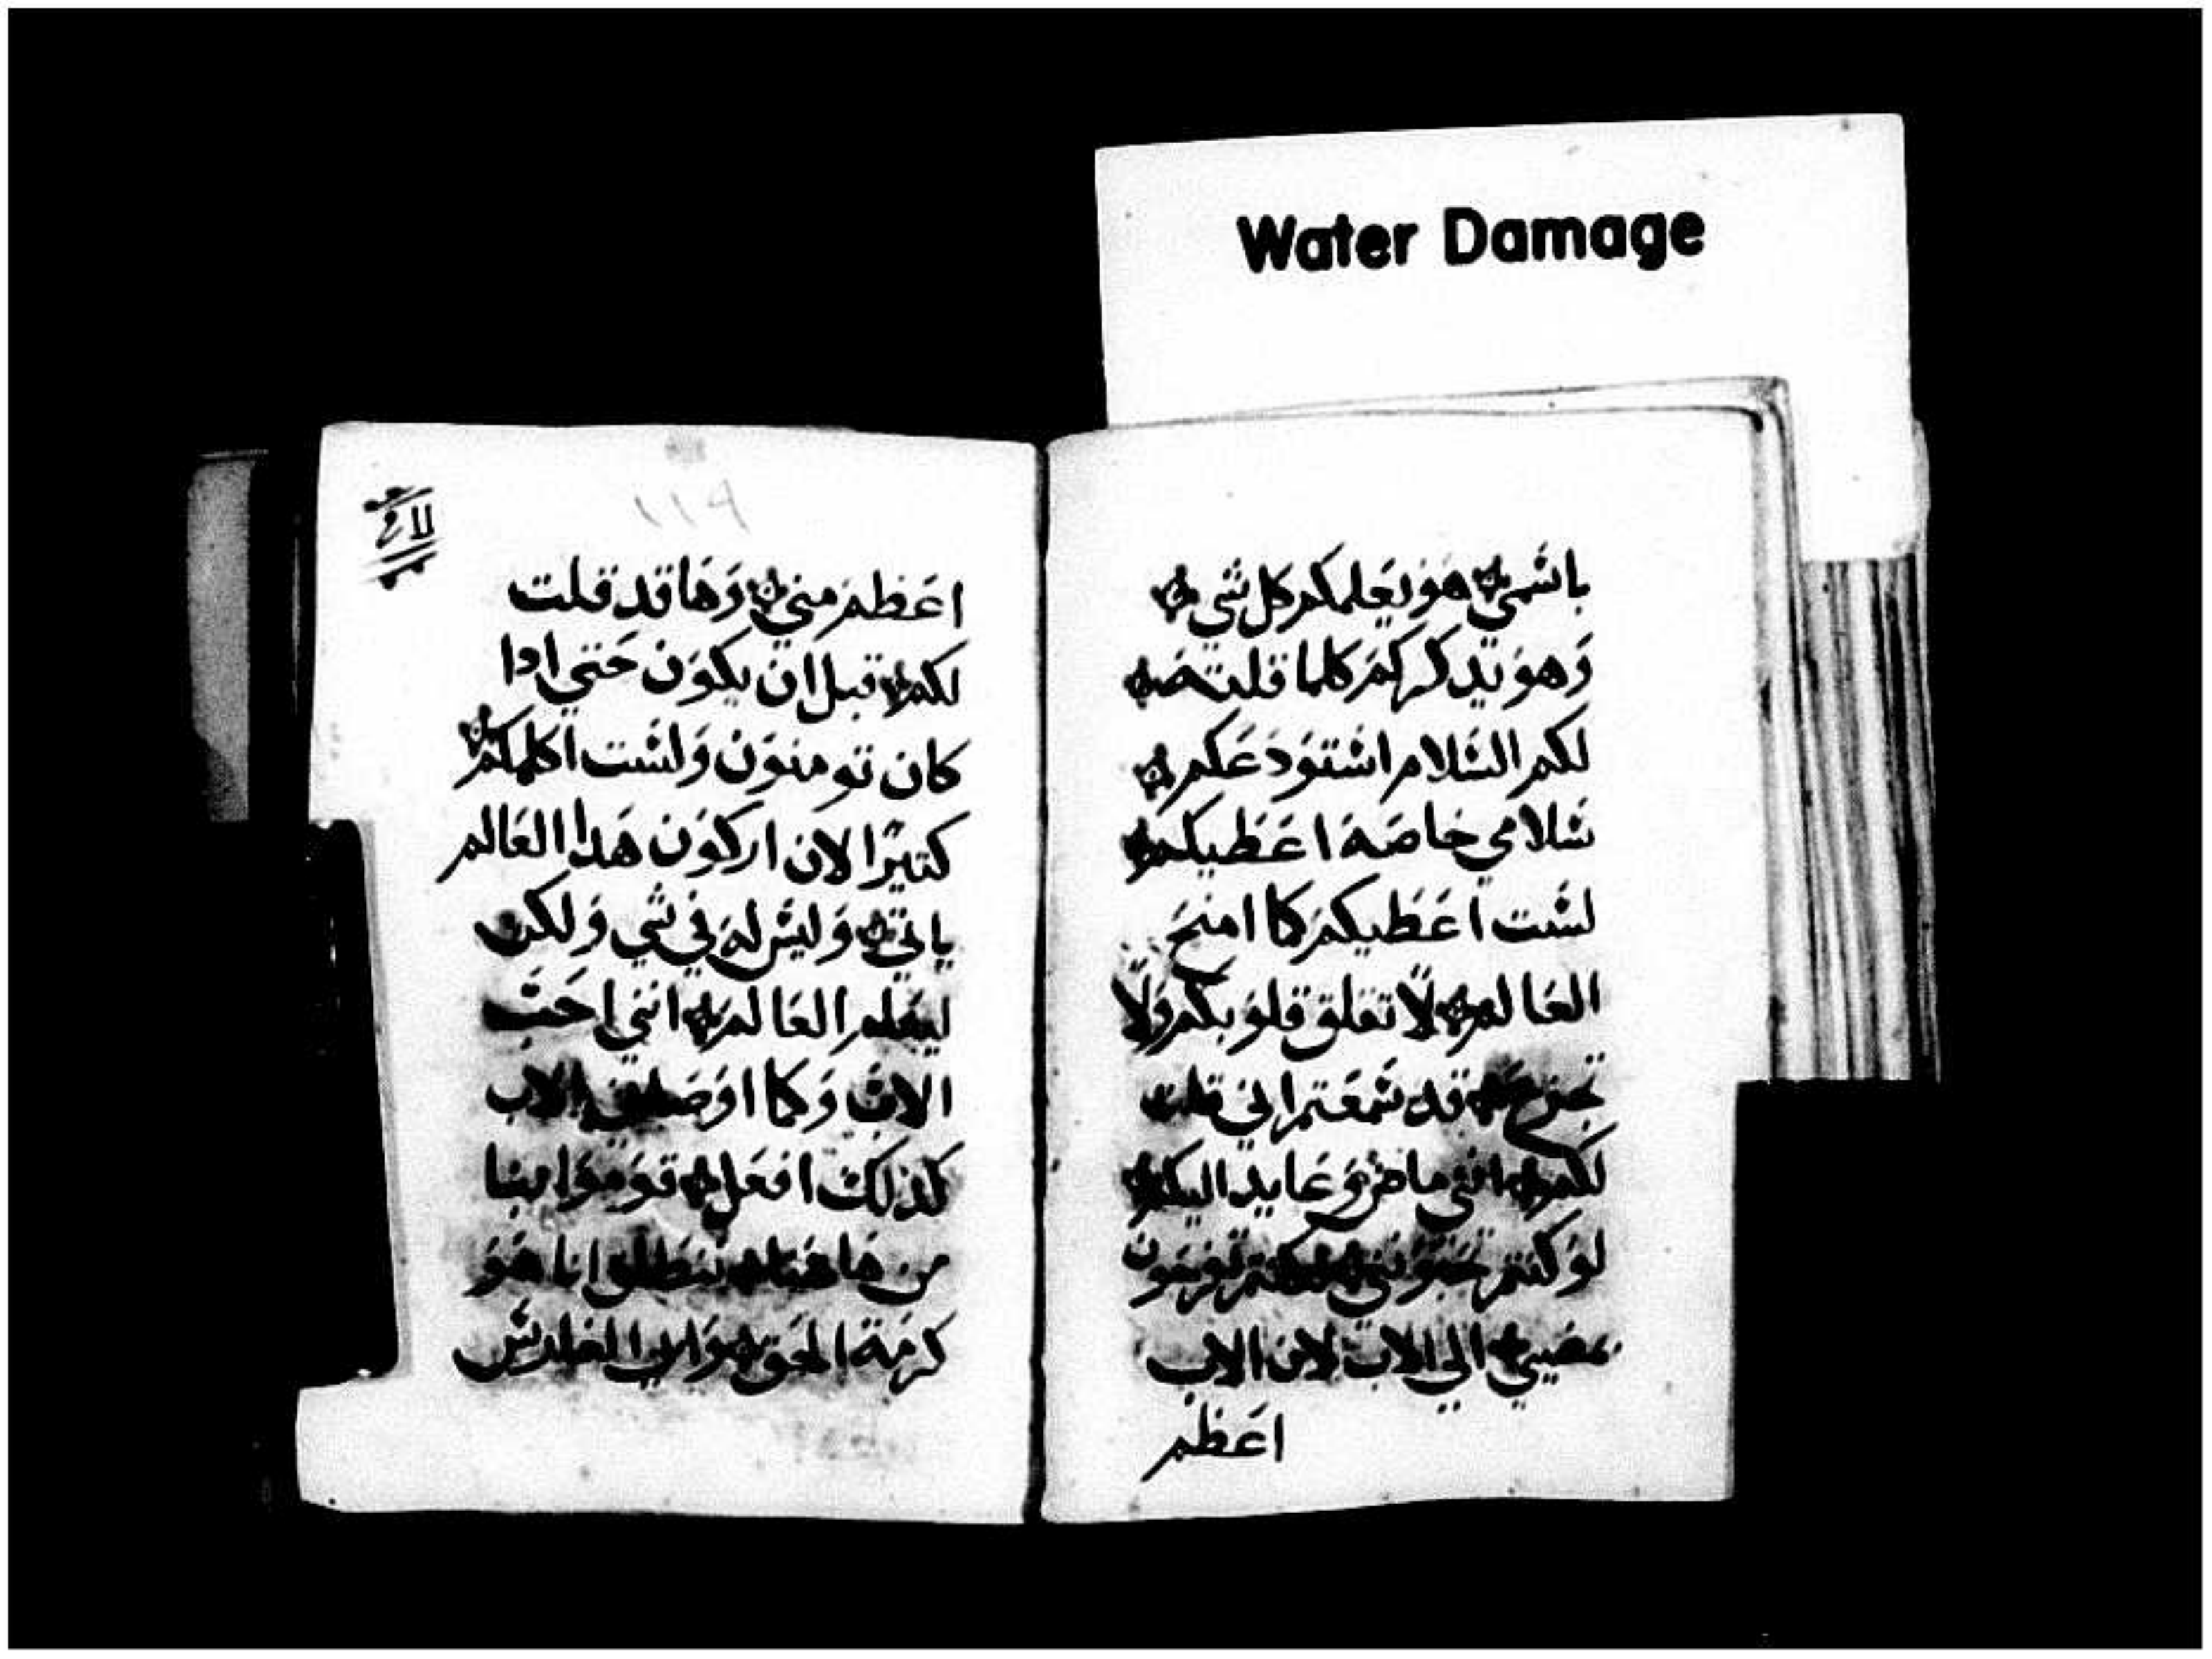 Water Damage
باسمي هو يعلمكم كل شي
وهو يدكركم كلما قلته
لكم السلام استودعكم
سلامي خاصة اعطيكم
لست اعطيكم كما امنح
العالم لا تقلق قلوبكم ولا
تجزع قد سمعتم اني قلت
لكم انني ماض وعايد اليكم
لو كنتم تحبوني لكنتم تفرحون
بمضيي الي الاب لان الاب
اعظم
١١٩
اعظم مني وها قد قلت
لكم قبل ان يكون حتي ادا
كان تومنون ولست اكلمكم
كتيرا لان اركون هدا العالم
ياتي وليس له في شي ولكن
ليعلم العالم انني احب
الاب وكما اوصاني الاب
كذلك افعل قوموا بنا
من هاهنا ننطلق انا هو
كرمة الحق وابي الغارس